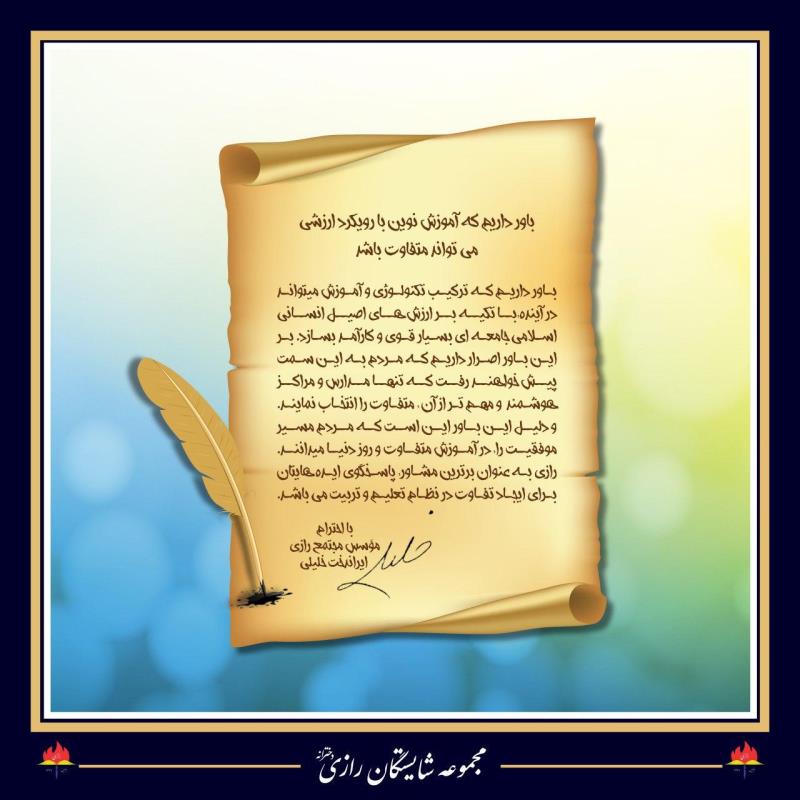 باور داریم که آموزش نوین با رویکرد ارزشی
می تواند متفاوت باشد
باور داریم که ترکیب تکنولوژی و آموزش میتواند
در آینده با تکیه بر ارزش های اصیل انسانی
اسلامی جامعه ای بسیار قوی و کارآمد بسازد. بر
این باور اصرار داریم که مردم به این سمت
پیش خواهند رفت که تنها مدارس و مراکز
هوشمند و مهم تر از آن، متفاوت را انتخاب نمایند.
و دلیل این باور این است که مردم مسیر
موفقیت را، در آموزش متفاوت و روز دنیا میدانند.
رازی به عنوان برترین مشاور، پاسخگوی ایده هایتان
برای ایجاد تفاوت در نظام تعلیم و تربیت می باشد.
با احترام
مؤسس مجتمع رازی
ایراندخت خلیلی
مجموعه شایستگان رازی
دخترانه